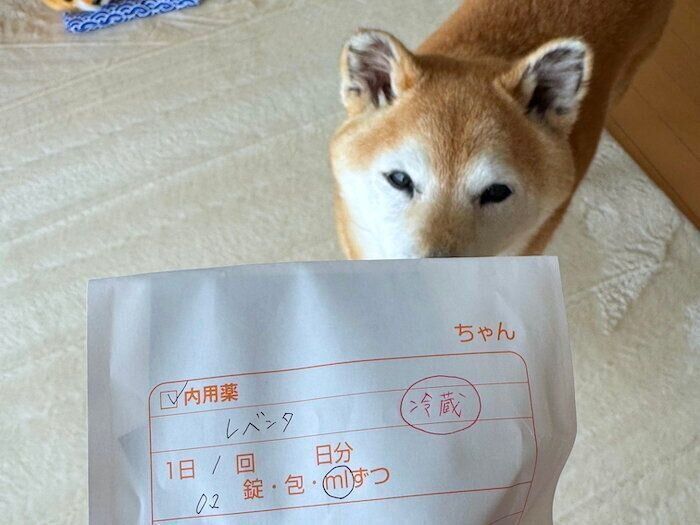 ちゃん
☑内用薬
レベンタ 冷蔵
1日 1 回 日分
0.2 錠・包・mlずつ